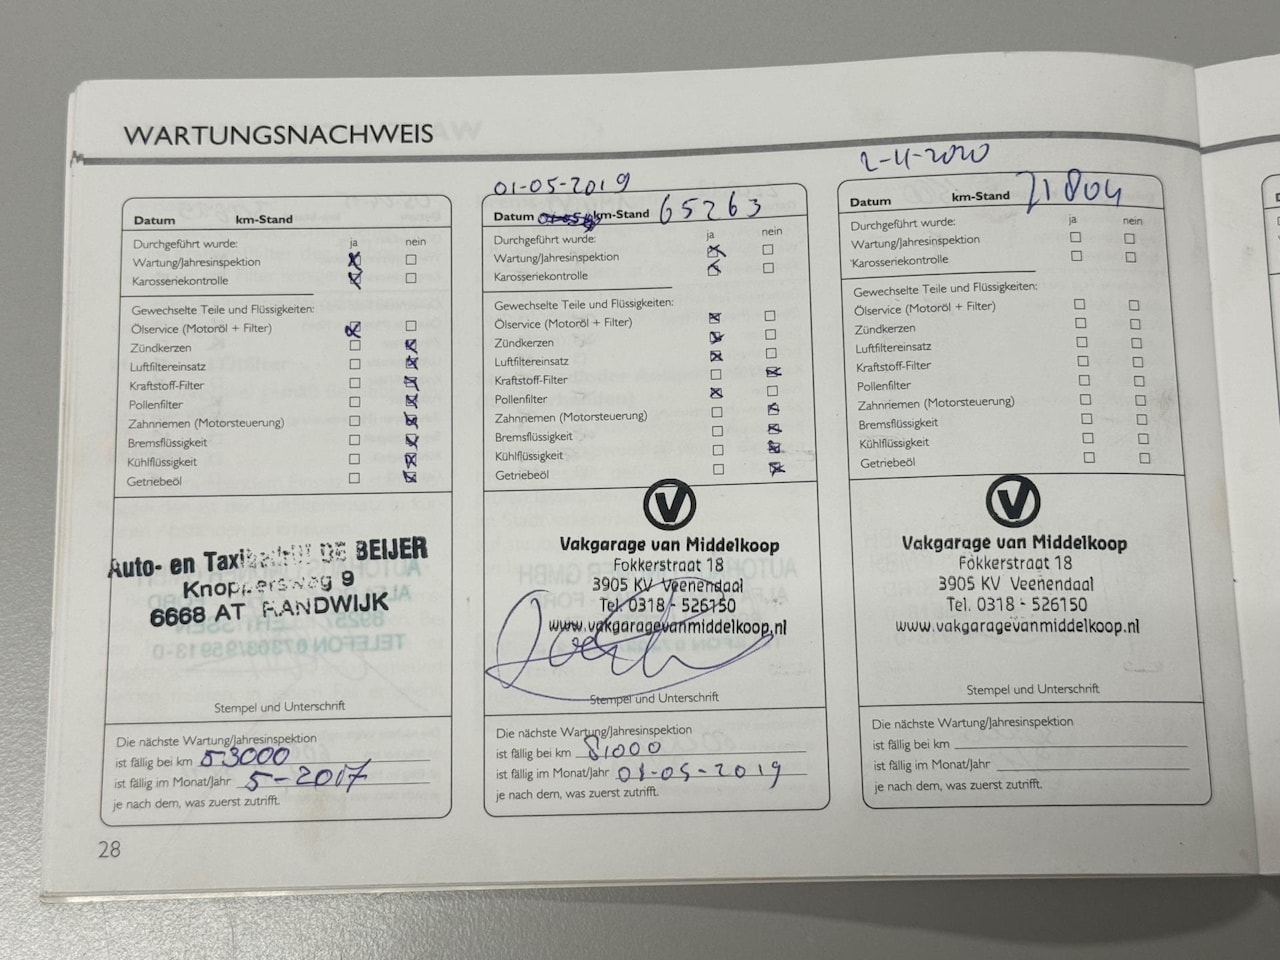 WARTUNGSNACHWEIS
Datum km-Stand
Durchgeführt wurde: ja nein
Wartung/Jahresinspektion
Karosseriekontrolle
Gewechselte Teile und Flüssigkeiten:
Ölservice (Motoröl + Filter)
Zündkerzen
Luftfiltereinsatz
Kraftstoff-Filter
Pollenfilter
Zahnriemen (Motorsteuerung)
Bremsflüssigkeit
Kühlflüssigkeit
Getriebeöl
Auto- en Taxibedrijf DE BEIJER
Knoppersweg 9
6668 AT RANDWIJK
Stempel und Unterschrift
Die nächste Wartung/Jahresinspektion
ist fällig bei km 53000
ist fällig im Monat/Jahr 5-2017
je nach dem, was zuerst zutrifft.
01-05-2019
Datum km-Stand 65263
Durchgeführt wurde: ja nein
Wartung/Jahresinspektion
Karosseriekontrolle
Gewechselte Teile und Flüssigkeiten:
Ölservice (Motoröl + Filter)
Zündkerzen
Luftfiltereinsatz
Kraftstoff-Filter
Pollenfilter
Zahnriemen (Motorsteuerung)
Bremsflüssigkeit
Kühlflüssigkeit
Getriebeöl
V
Vakgarage van Middelkoop
Fokkerstraat 18
3905 KV Veenendaal
Tel. 0318 - 526150
www.vakgaragevanmiddelkoop.nl
Stempel und Unterschrift
Die nächste Wartung/Jahresinspektion
ist fällig bei km 81000
ist fällig im Monat/Jahr 01-05-2019
je nach dem, was zuerst zutrifft.
2-11-2020
Datum km-Stand 71804
ja nein
Durchgeführt wurde:
Wartung/Jahresinspektion
Karosseriekontrolle
Gewechselte Teile und Flüssigkeiten:
Ölservice (Motoröl + Filter)
Zündkerzen
Luftfiltereinsatz
Kraftstoff-Filter
Pollenfilter
Zahnriemen (Motorsteuerung)
Bremsflüssigkeit
Kühlflüssigkeit
Getriebeöl
V
Vakgarage van Middelkoop
Fokkerstraat 18
3905 KV Veenendaal
Tel. 0318 - 526150
www.vakgaragevanmiddelkoop.nl
Stempel und Unterschrift
Die nächste Wartung/Jahresinspektion
ist fällig bei km
ist fällig im Monat/Jahr
je nach dem, was zuerst zutrifft.
28